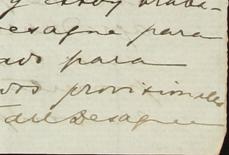 y estoy traba-
desague para
ado para
dos provisionales
desague